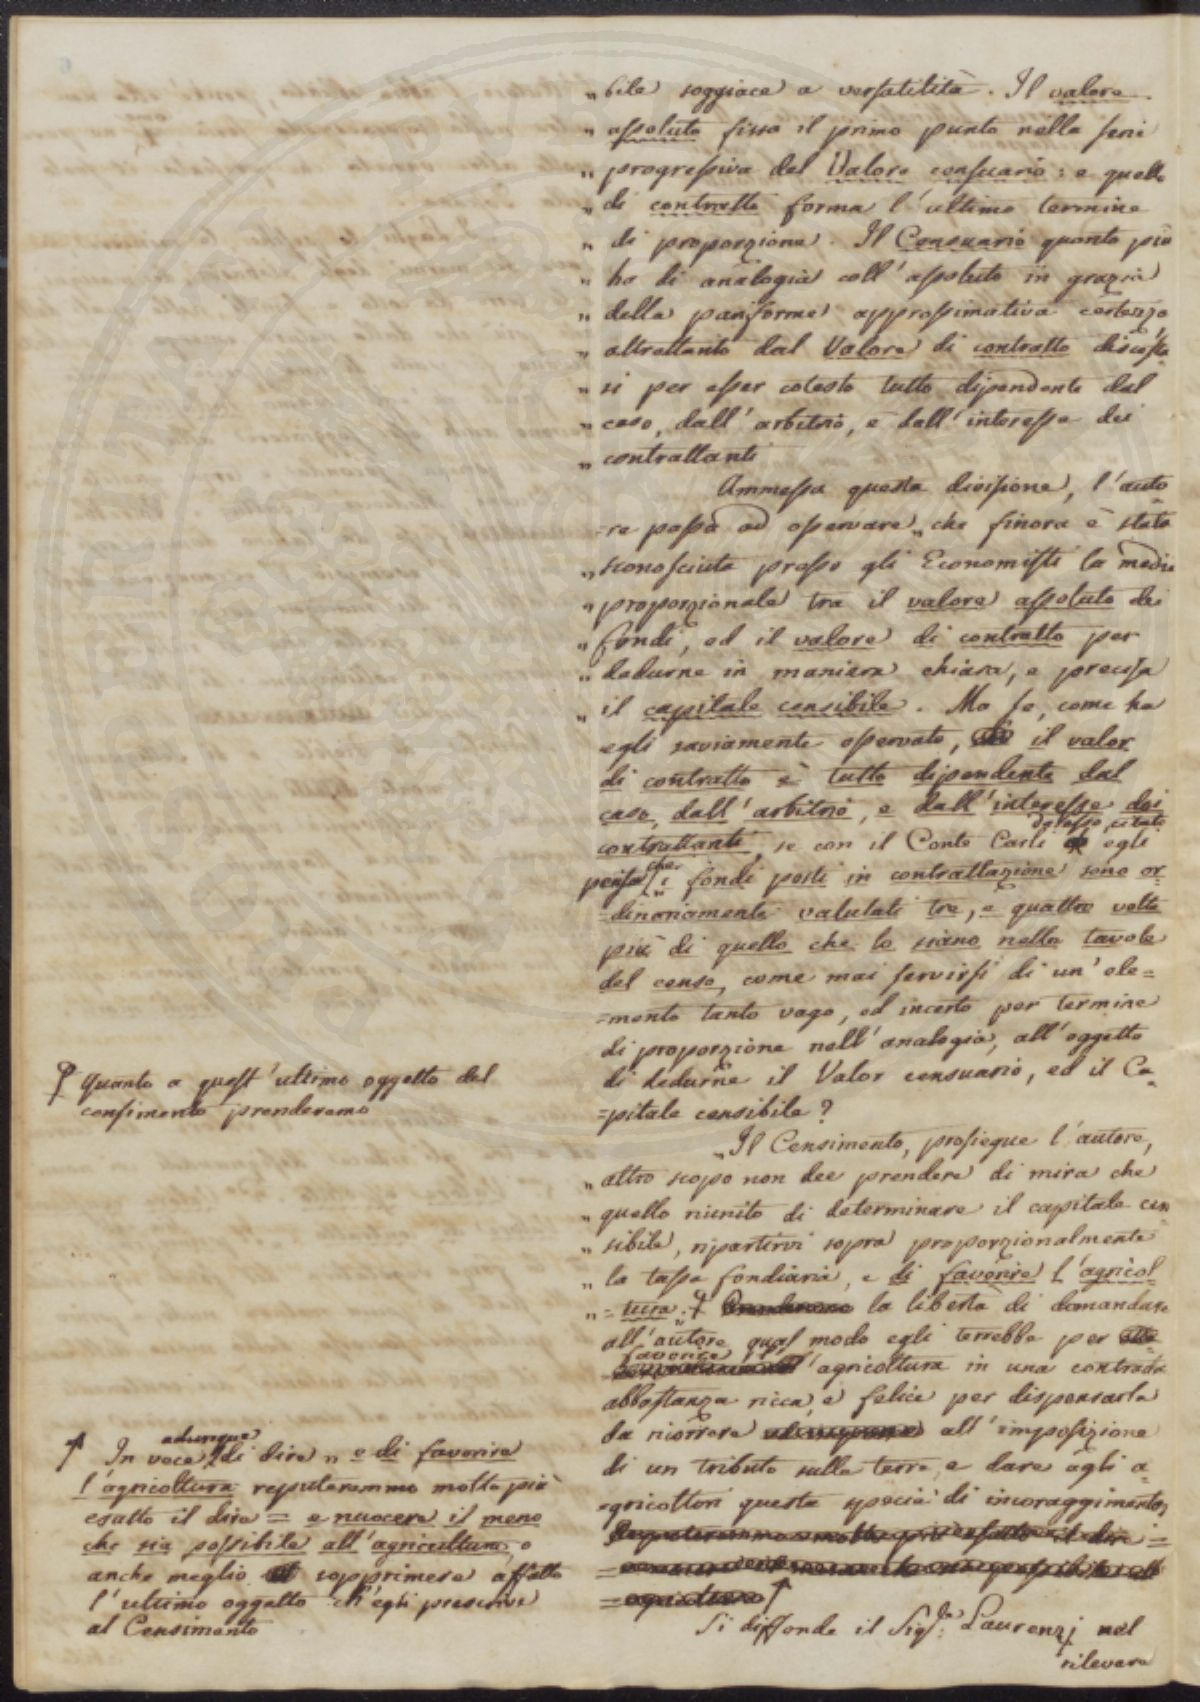 „ bile soggiace a versatilità. Il valore
„ assoluto fissa il primo punto nella serie
„ progressiva del Valore censuario: e quello
„ di contratto forma l'ultimo termine
„ di proporzione. Il Censuario quanto più
„ ha di analogia coll'assoluto in grazia
„ della pariforme approssimativa certezza,
„ altrettanto dal Valore di contratto discosta
„ si per esser cotesto tutto dipendente dal
„ caso, dall'arbitrio, e dall'interesse dei
„ contrattanti
Ammessa questa divisione, l'auto
=re passa ad osservare „ che finora è stata
„ sconosciuta presso gli Economisti la media
„ proporzionale tra il valore assoluto dei
„ fondi, ed il valore di contratto per
„ dedurne in maniera chiara, e precisa
„ il capitale censibile. Ma se, come ha
egli saviamente osservato, il valor
di contratto è tutto dipendente dal
caso, dall'arbitrio, e dall'interesse dei
contrattanti, se con il Conte Carli da esso citato egli
pensa che i fondi posti in contrattazione sono or
=dinariamente valutati tre, e quattro volte
più di quello che lo siano nelle tavole
del censo, come mai servirsi di un'ele=
=mento tanto vago, ed incerto per termine
di proporzione nell'analogia, all'oggetto
di dedurne il Valor censuario, ed il Ca=
=pitale censibile?
„ Il Censimento, prosiegue l'autore,
„ altro scopo non dee prendere di mira che
„ quello riunito di determinare il capitale cen
„ sibile, ripartirvi sopra proporzionalmente
„ la tassa fondiaria, e di favorire l'agricol=
„ =tura. la libertà di domandare
all'autore qual modo egli terrebbe per
favorire l'agricoltura in una contrada
abbastanza ricca, e felice per dispensarla
da ricorrere all'imposizione
di un tributo sulle terre, e dare agli a=
=gricoltori questa specie di incoraggimento,
Reputeremmo molto più esatto il dire =
=agricoltura
Si diffonde il Sig.r Laurenzj nel
rilevare
Quanto a quest'ultimo oggetto del
censimento prenderemo
In vece adunque di dire „ e di favorire
l'agricoltura reputeremmo molto più
esatto il dire = e nuocere il meno
che sia possibile all'agricultura, o
anche meglio sopprimere affatto
l'ultimo oggetto ch'egli prescrive
al Censimento